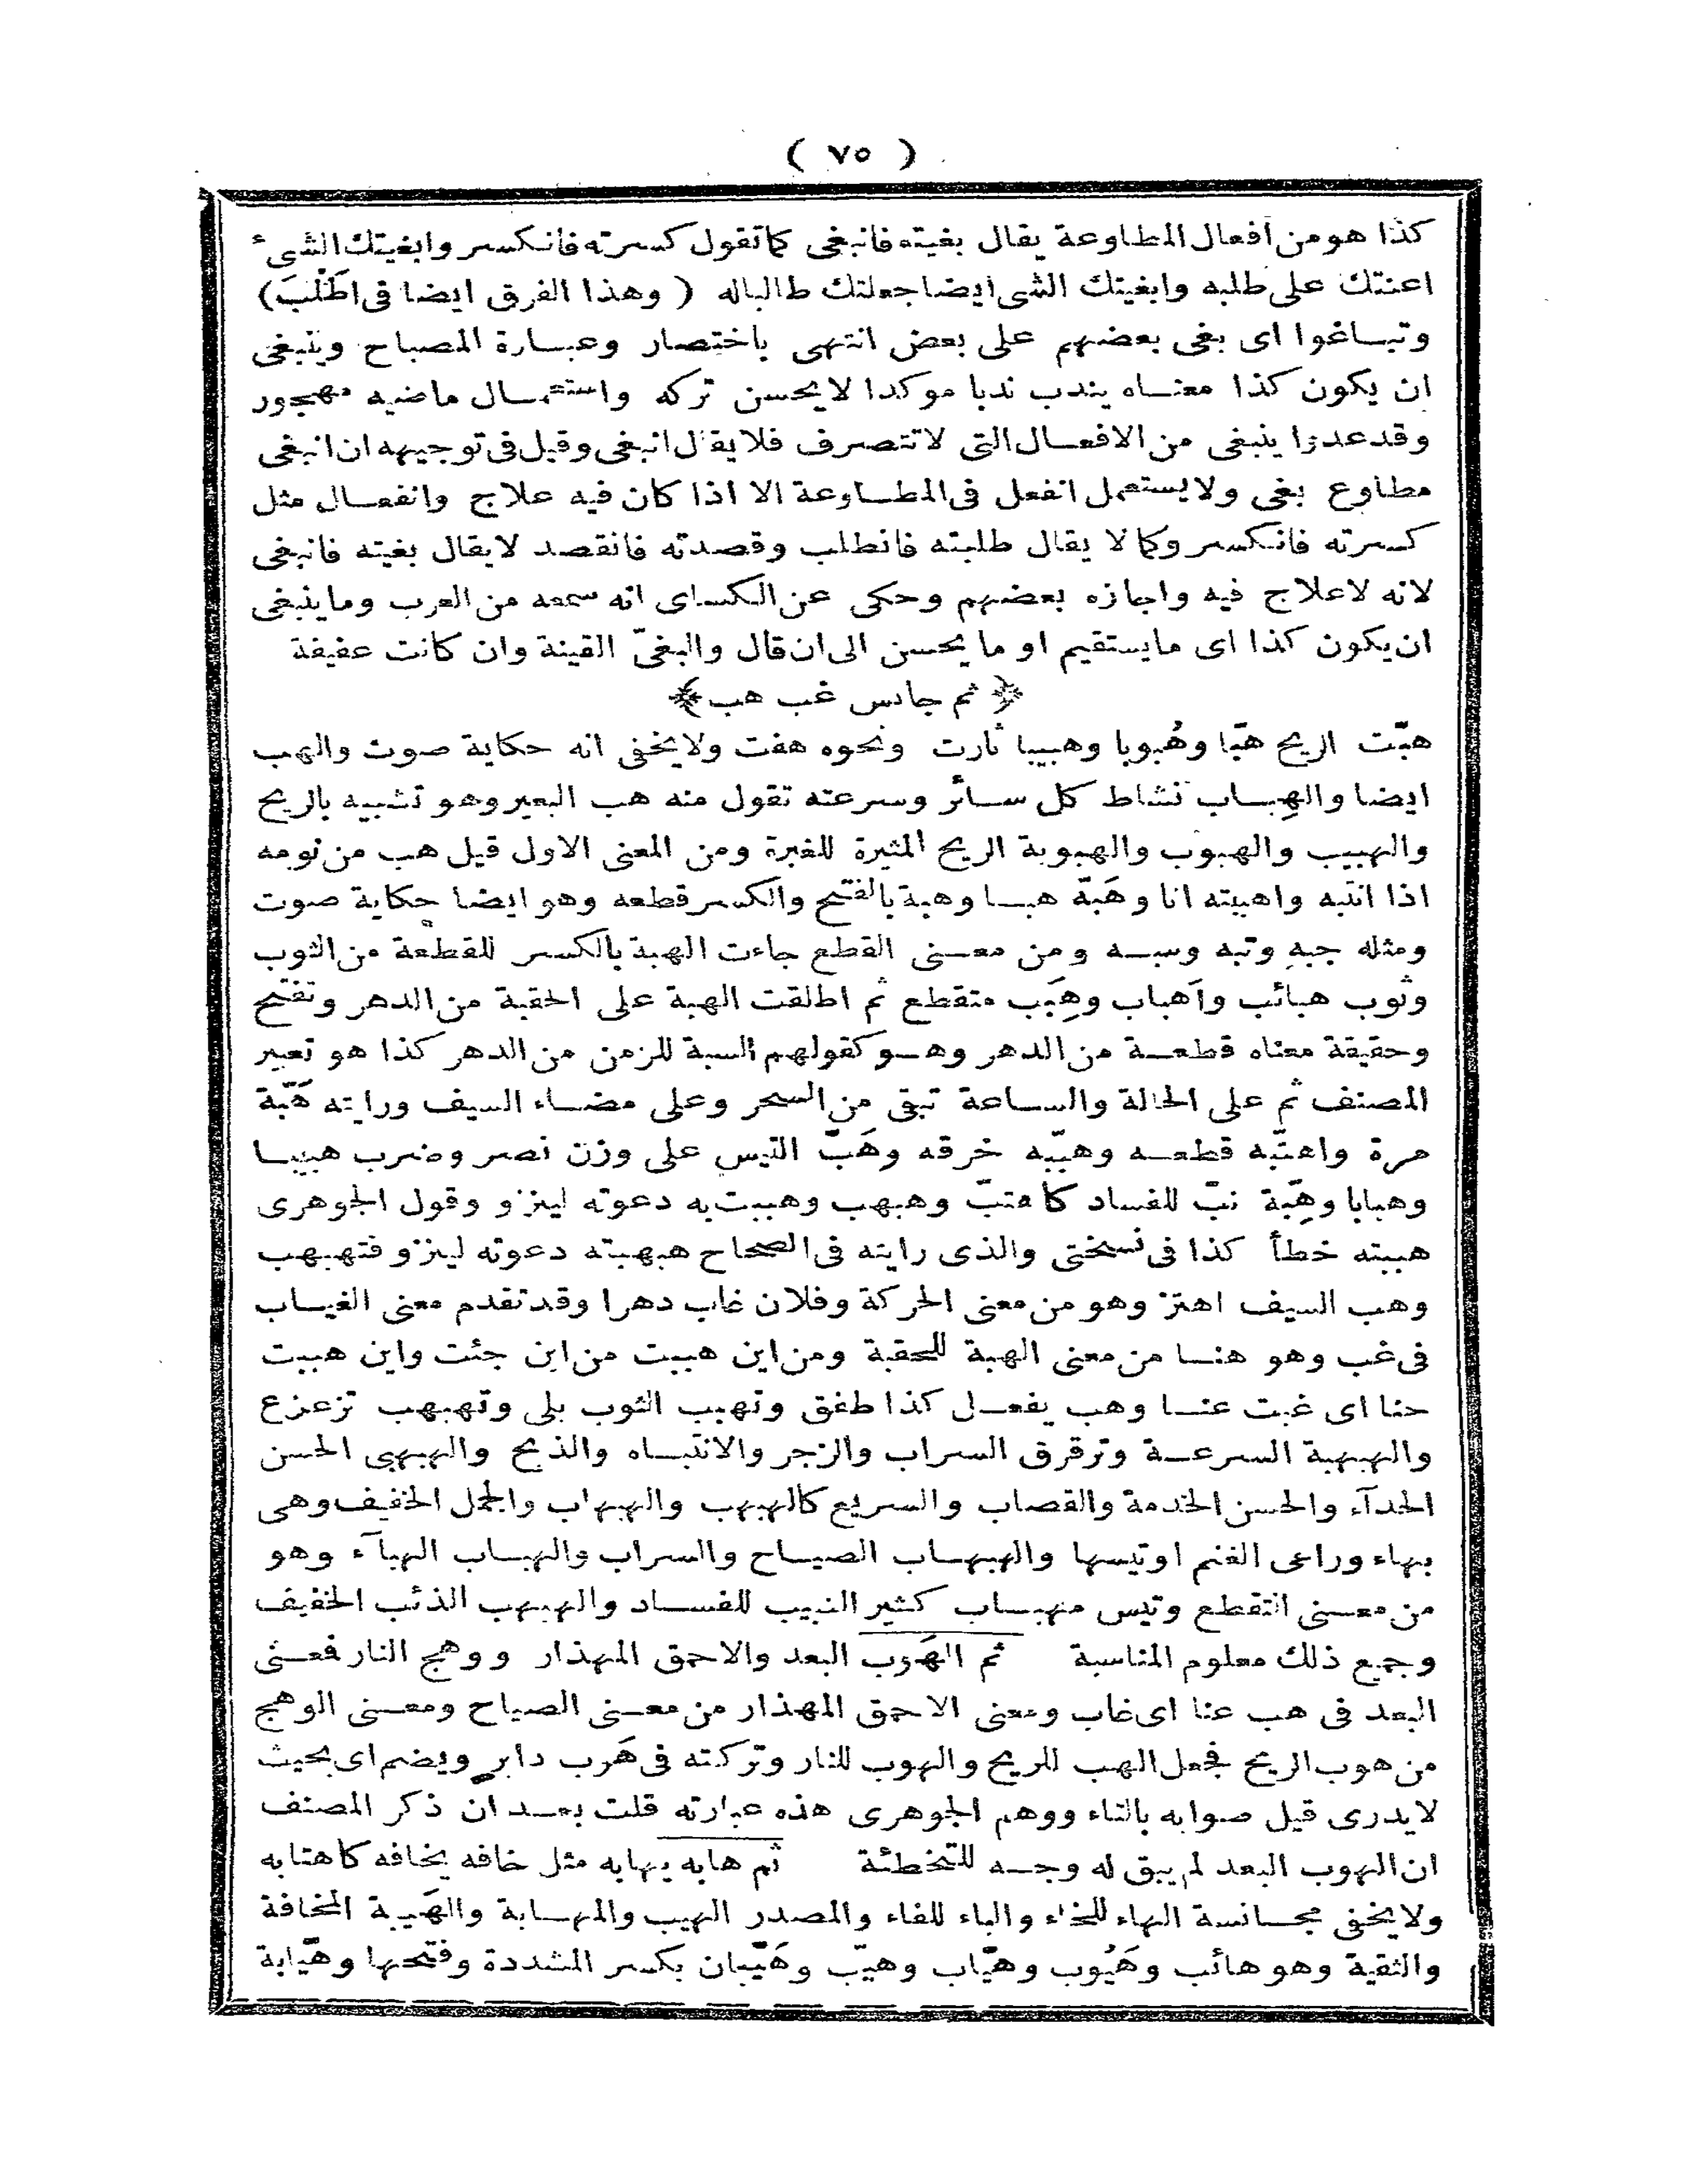 ( ٧٥ )
كذا هو من افعال المطاوعة يقال بغيته فانبغى كما تقول كسرته فانكسر وابغيتك الشىء
اعنتك على طلبه وابغيتك الشى ايضا جعلتك طالباله ( وهذا الفرق ايضا فى اطْلَبَ)
وتباغوا اى بغى بعضهم على بعض انتهى باختصار وعبارة المصباح وينبغى
ان يكون كذا معناه يندب ندبا موكدا لا يحسن تركه واستعمال ماضيه مهجور
وقد عدوا ينبغى من الافعال التى لا تتصرف فلا يقال انبغى وقيل فى توجيهه ان انبغى
مطاوع بغى ولا يستعمل انفعل فى المطاوعة الا اذا كان فيه علاج وانفعال مثل
كسرته فانكسر وكما لا يقال طلبته فانطلب وقصدته فانقصد لا يقال بغيته فانبغى
لانه لا علاج فيه واجازه بعضهم وحكى عن الكساى انه سمعه من العرب وما ينبغى
ان يكون كذا اى ما يستقيم او ما يحسن الى ان قال والبغىّ القينة وان كانت عفيفة
﴿ ثم جانس غب هب ﴾
هبّت الريح هبّا وهُبوبا وهبيبا ثارت ونحوه هفت ولا يخفى انه حكاية صوت والهب
ايضا والهِباب نشاط كل سائر وسرعته تقول منه هب البعير وهو تشبيه بالريح
والهبيب والهبوب والهبوبة الريح المثيرة للغبرة ومن المعنى الاول قيل هب من نومه
اذا انتبه واهببته انا وهَبّه هبا وهبة بالفتح والكسر قطعه وهو ايضا حكاية صوت
ومثله جبه وتبه وسبه ومن معنى القطع جاءت الهبة بالكسر للقطعة من الثوب
وثوب هبائب وأهباب وهِبَب متقطع ثم اطلقت الهبة على الحقبة من الدهر وتفتح
وحقيقة معناه قطعة من الدهر وهو كقولهم السبة للزمن من الدهر كذا هو تعبير
المصنف ثم على الحالة والساعة تبقى من السحر وعلى مضاء السيف ورايته هَبّة
مرة واهتبّه قطعه وهبّبه خرقه وهَبّ التيس على وزن نصر وضرب هبيبا
وهبابا وهِبّة نبّ للفساد كاهتبّ وهبهب وهببت به دعوته لينزو وقول الجوهرى
هببته خطأ كذا فى نسختى والذى رايته فى الصحاح هبهبته دعوته لينزو فتهبهب
وهب السيف اهتز وهو من معنى الحركة وفلان غاب دهرا وقد تقدم معنى الغياب
فى غب وهو هنا من معنى الهبة للحقبة ومن اين هببت من اين جئت واين هببت
حنا اى غبت عنا وهب يفعل كذا طفق وتهبب الثوب بلى وتهبهب تزعزع
والهبهبة السرعة وترقرق السراب والزجر والانتباه والذبح والهبهبى الحسن
الحدآء والحسن الخدمة والقصاب والسريع كالهبهب والهبهاب والجمل الخفيف وهى
بهاء وراعى الغنم او تيسها والهبهاب الصياح والسراب والهباب الهبآء وهو
من معنى التقطع وتيس مهباب كثير النبيب للفساد والهبهب الذئب الخفيف
وجميع ذلك معلوم المناسبة ثم الهَوب البعد والاحمق المهذار ووهج النار فعنى
البعد فى هب عنا اى غاب ومعنى الاحمق المهذار من معنى الصياح ومعنى الوهج
من هوب الريح فجعل الهب للريح والهوب للنار وتركته فى هَوب دابر ويضم اى بحيث
لا يدرى قيل صوابه بالتاء ووهم الجوهرى هذه عبارته قلت بعد ان ذكر المصنف
ان الهوب البعد لم يبق له وجه للتخطئة ثم هابه يهابه مثل خافه يخافه كاهتابه
ولا يخفى مجانسة الهاء للخاء والباء للفاء والمصدر الهيب والمهابة والهَيبة المخافة
والتقية وهو هائب وهَيُوب وهيّاب وهيّب وهَيّبان بكسر المشددة وفتحها وهيّابة